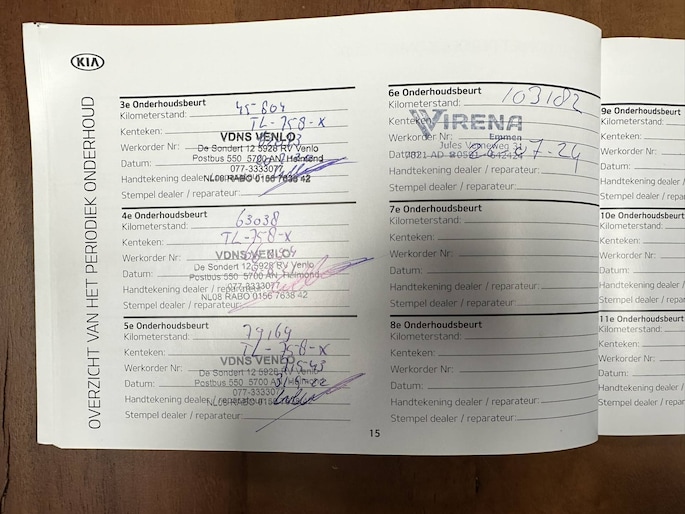 KIA
OVERZICHT VAN HET PERIODIEK ONDERHOUD
3e Onderhoudsbeurt
Kilometerstand: 45-604
Kenteken: TL-758-X
VDNS VENLO
Werkorder Nr:
De Sondert 12 5928 RV Venlo
Datum:
Postbus 550 5700 AN Helmond
077-3333077
Handtekening dealer
NL08 RABO 0156 7638 42
Stempel dealer / reparateur:
4e Onderhoudsbeurt
Kilometerstand: 63038
Kenteken: TL-758-X
VDNS VENLO
Werkorder Nr:
De Sondert 12 5928 RV Venlo
Datum:
Postbus 550 5700 AN Helmond
077-3333077
Handtekening dealer / reparateur:
NL08 RABO 0156 7638 42
Stempel dealer / reparateur:
5e Onderhoudsbeurt
Kilometerstand: 79169
Kenteken: TL-758-X
VDNS VENLO
Werkorder Nr:
De Sondert 12 5928 RV Venlo
Datum:
Postbus 550 5700 AN Helmond
077-3333077
Handtekening dealer / reparateur:
NL08 RABO 0156 7638 42
Stempel dealer / reparateur:
6e Onderhoudsbeurt
Kilometerstand: 103182
Kenteken:
VIRENA
Werkorder Nr:
Emmen
Jules Verneweg 31
Datum: 24-07-24
7821 AD
Handtekening dealer / reparateur:
Stempel dealer / reparateur:
7e Onderhoudsbeurt
Kilometerstand:
Kenteken:
Werkorder Nr:
Datum:
Handtekening dealer / reparateur:
Stempel dealer / reparateur:
8e Onderhoudsbeurt
Kilometerstand:
Kenteken:
Werkorder Nr:
Datum:
Handtekening dealer / reparateur:
Stempel dealer / reparateur:
15
9e Onderhoudsbeurt
Kilometerstand:
Kenteken:
Werkorder Nr:
Datum:
Handtekening dealer
Stempel dealer / rep
10e Onderhoudsbeurt
Kilometerstand:
Kenteken:
Werkorder Nr:
Datum:
Handtekening dealer
Stempel dealer / repa
11e Onderhoudsbeurt
Kilometerstand:
Kenteken:
Werkorder Nr:
Datum:
Handtekening dealer
Stempel dealer / repara